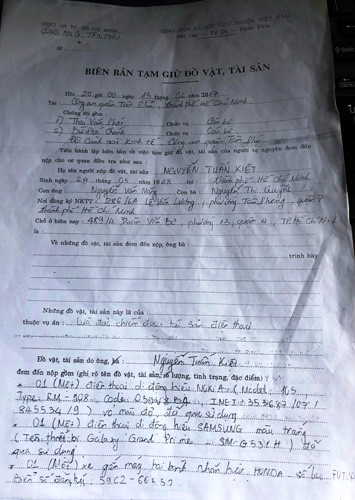 CÔNG AN TP. HỒ CHÍ MINH
CÔNG AN Q. TÂN PHÚ
CỘNG HÒA XÃ HỘI CHỦ NGHĨA VIỆT NAM
Độc Lập - Tự Do - Hạnh Phúc
Số :
BIÊN BẢN TẠM GIỮ ĐỒ VẬT, TÀI SẢN
Hồi 20 giờ 00 ngày 15 tháng 02 năm 2017
Tại : Công an quận Tân Phú, thành phố Hồ Chí Minh
Chúng tôi gồm :
1) Thái Văn Phát Chức vụ : Cán bộ
2) Chức vụ : Cán bộ
Đội Cảnh sát Kinh tế Công an quận Tân Phú
Tiến hành lập biên bản về việc tạm giữ đồ vật, tài sản của người tự nguyện đem đến
nộp cho cơ quan điều tra như sau :
Họ tên người nộp đồ vật, tài sản : NGUYỄN TUẤN KIỆT
Sinh ngày 24 tháng 05 năm tại : thành phố Hồ Chí Minh
Con ông : Nguyễn Văn Nông Con bà : Nguyễn Thị
Nơi đăng ký NKTT : Lê Văn Lương, phường Tân Phong, quận 7
thành phố Hồ Chí Minh
Chỗ ở hiện nay : 489/4 Đoàn Văn Bơ, phường 13, quận 4, TP. Hồ Chí Minh
là :
Về những đồ vật, tài sản đem đến nộp, ông bà :
trình bày
Những đồ vật, tài sản này là của
thuộc vụ án : Lừa đảo chiếm đoạt tài sản điện thoại
Đồ vật, tài sản do ông, bà : Nguyễn Tuấn Kiệt
đem đến nộp gồm (ghi rõ tên đồ vật, tài sản, số lượng, tình trạng, đặc điểm)
01 (Một) điện thoại di động hiệu NOKIA (Model: 105
Type: RM-908, Code: , IMEI: 353687/07/
845534/9) vỏ màu đỏ, đã qua sử dụng
01 (Một) điện thoại di động hiệu SAMSUNG màu trắng
(Tên thiết bị Galaxy Grand Prime SM-G531H) đã
qua sử dụng
01 (Một) xe gắn máy hai bánh nhãn hiệu HONDA số loại FUTURE
Biển số đăng ký 59C2-